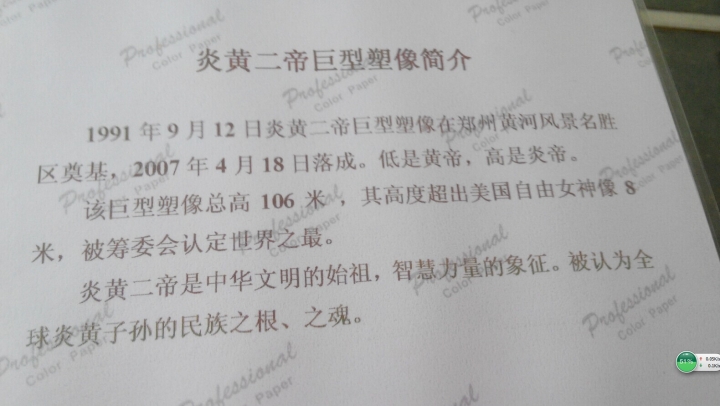 炎黄二帝巨型塑像简介
1991 年 9 月 12 日炎黄二帝巨型塑像在郑州黄河风景名胜
区奠基，2007 年 4 月 18 日落成。低是黄帝，高是炎帝。
该巨型塑像总高 106 米 ，其高度超出美国自由女神像 8
米，被筹委会认定世界之最。
炎黄二帝是中华文明的始祖，智慧力量的象征。被认为全
球炎黄子孙的民族之根、之魂。
Professional
Color Paper
Professional
Color Paper
Professional
Color Paper
Professional
Color Paper
Professional
Color Paper
51%